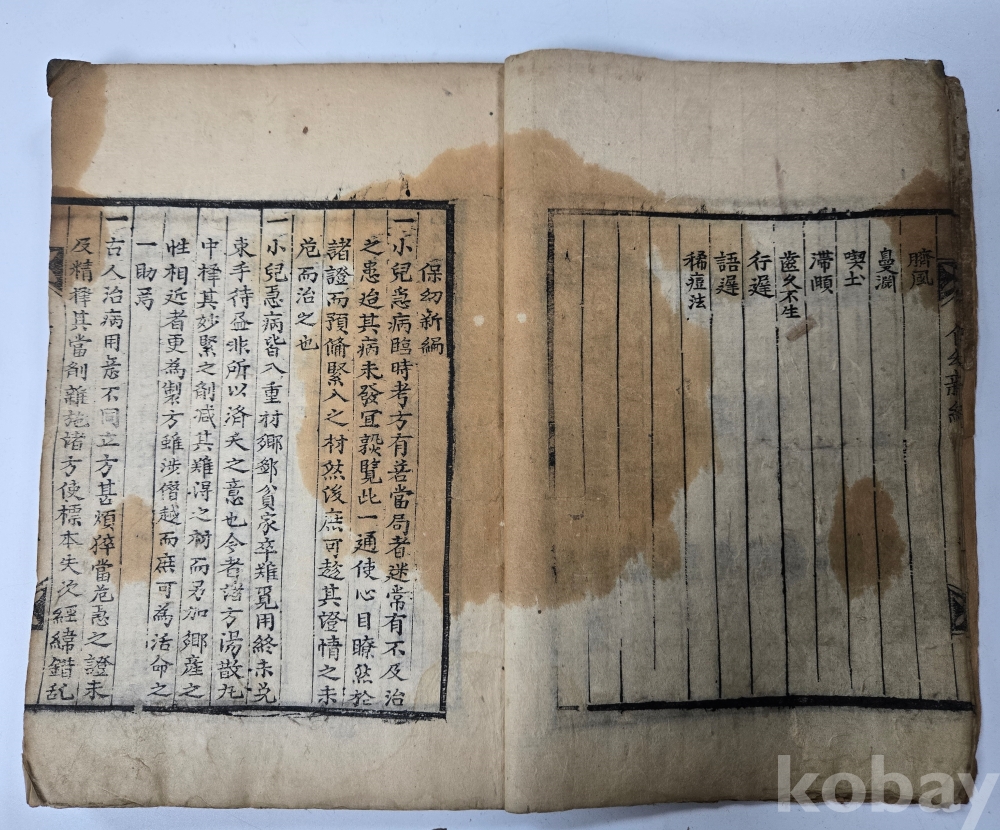 臍風
曼潤
喫土
滯頤
齒久不生
行遲
語遲
稀痘法
保幼新編
一小兒急病臨時考方有若當局者迷常有不及治
之患迨其病未發宜熟覽此一通使心目瞭然於
諸證而預備緊入之材然後庶可趂其證情之未
危而治之也
一小兒急病皆入重材鄕鄙貧家卒難覓用終未免
束手待盡非所以済夭之意也今者諸方湯散丸
中擇其妙緊之劑减其難得之材而另加鄕産之
性相近者更為製方雖涉僭越而庶可為活命之
一助焉
一古人治病用意不同立方甚煩猝當危急之證未
及精擇其當劑雜施諸方使標本失次經緯錯乱
kobay